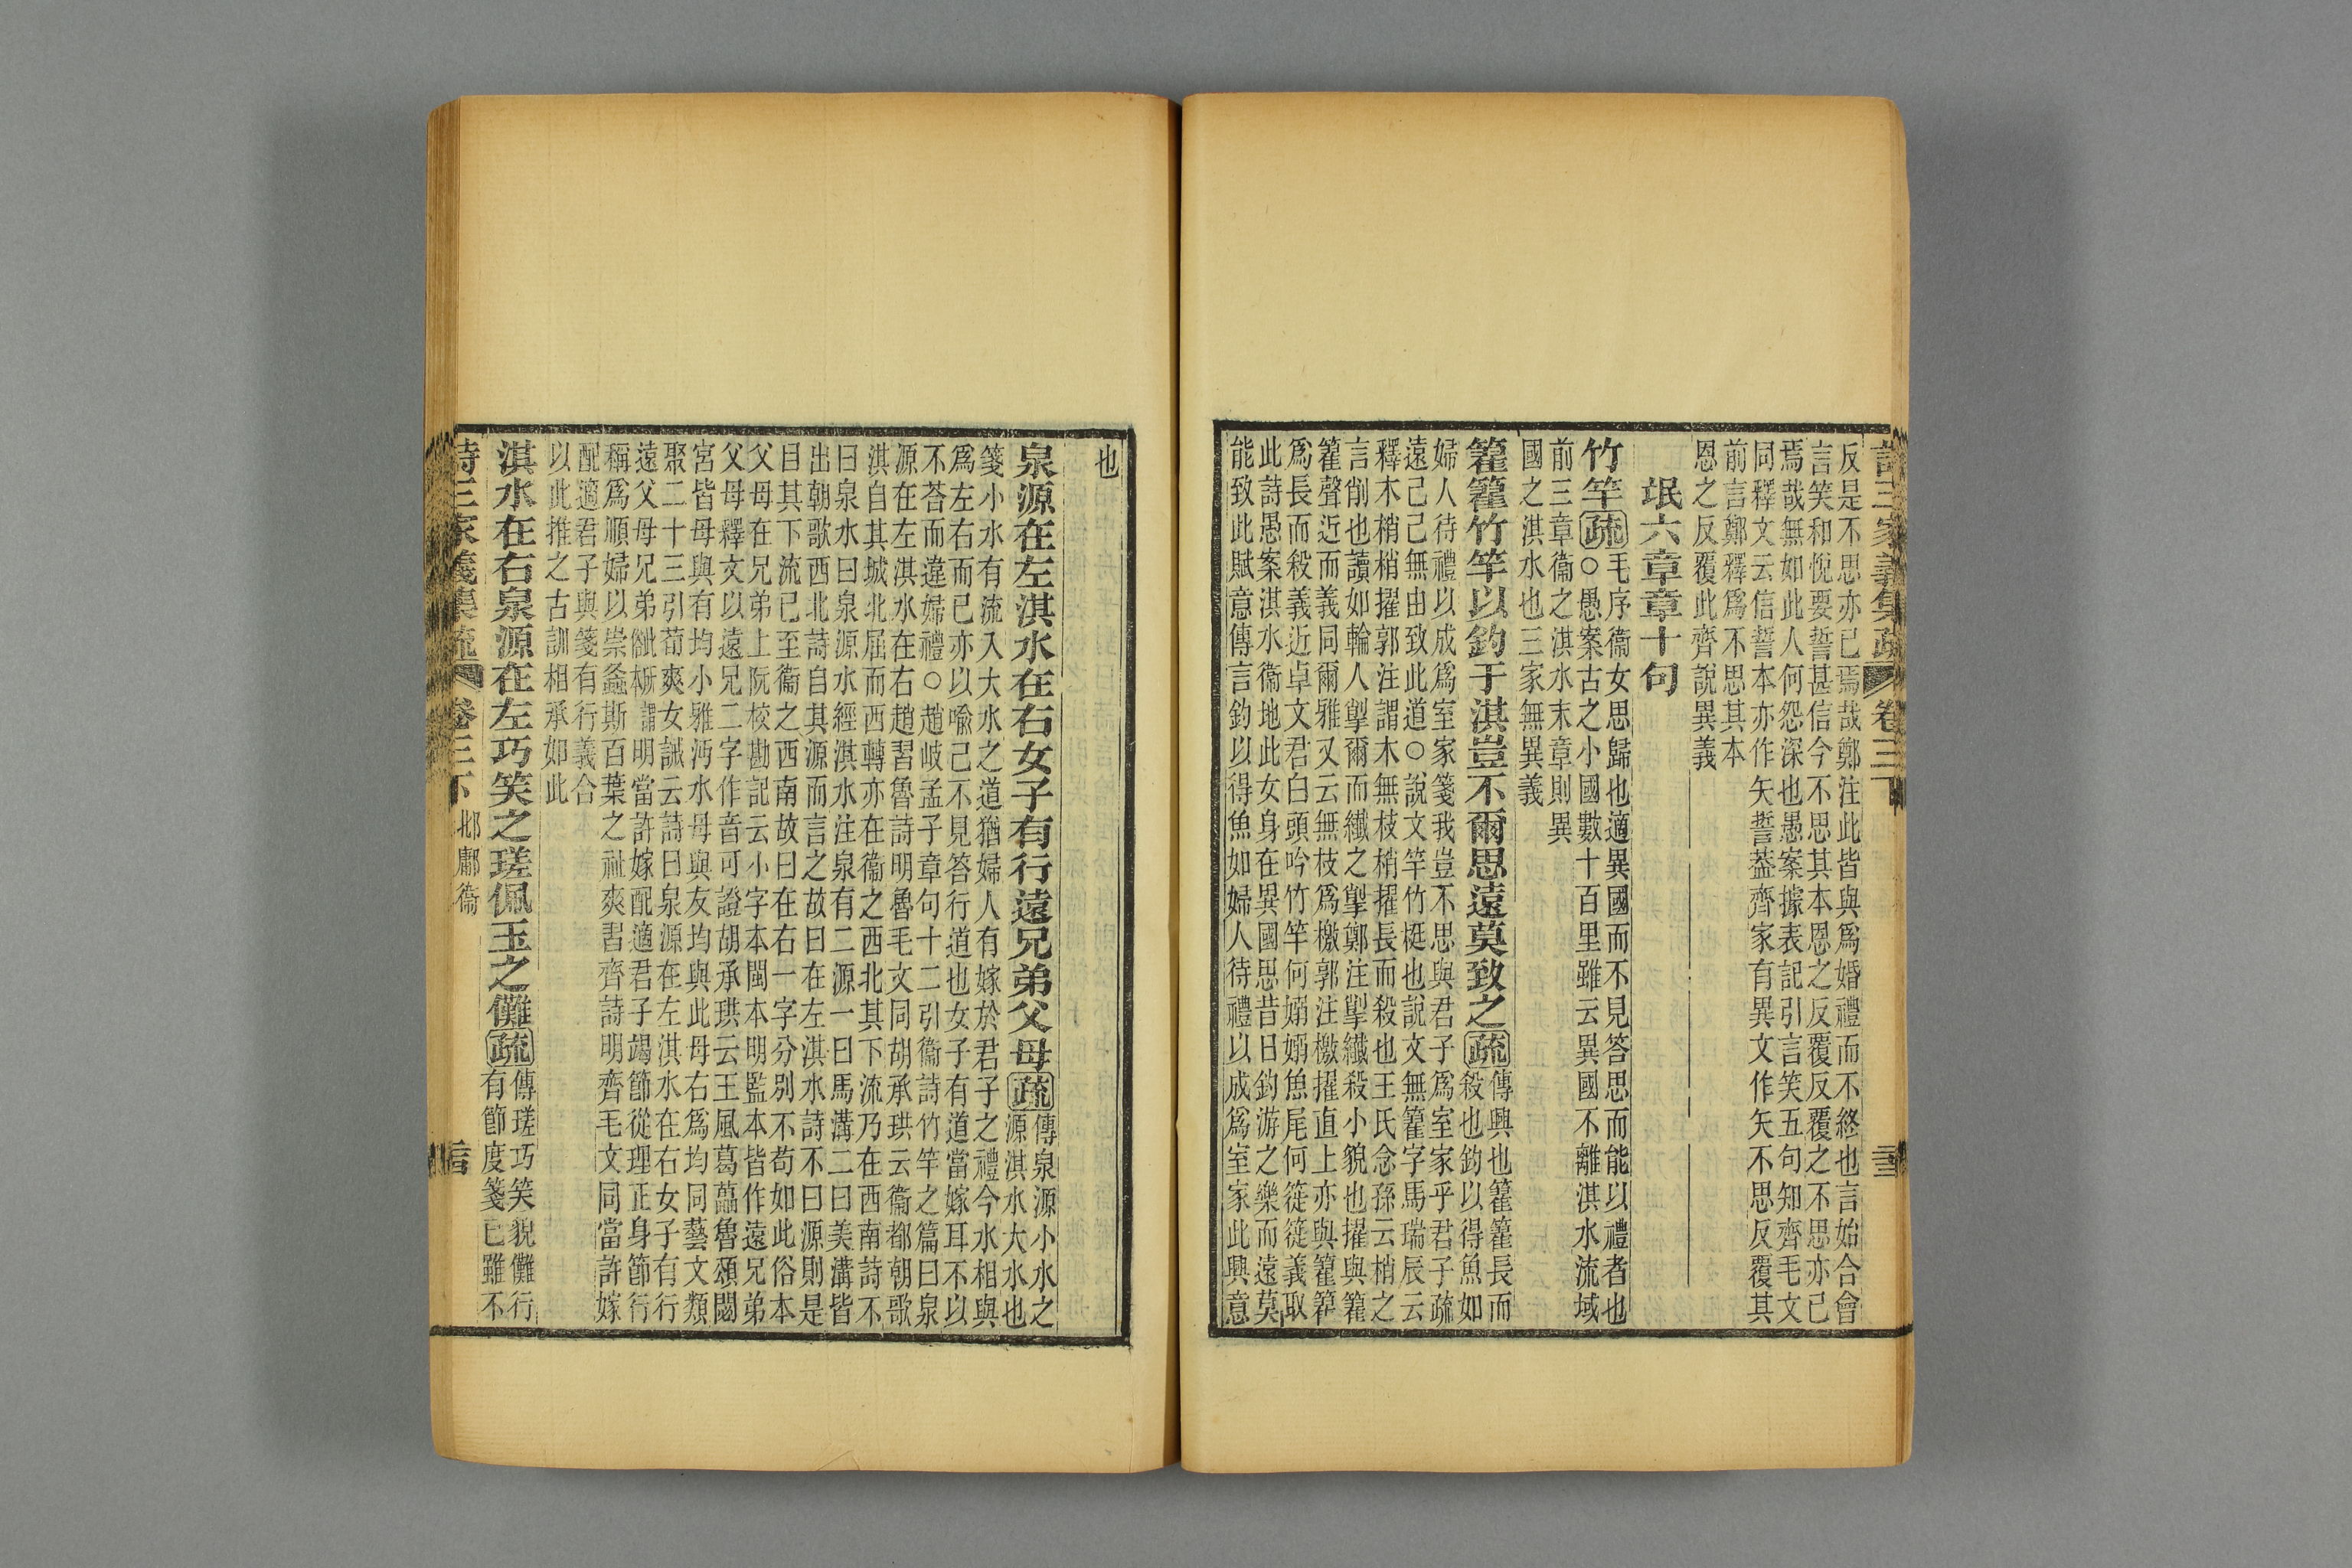 詩三家義集疏 卷三下
反是不思亦已焉哉鄭注此皆與爲婚禮而不終也言始合會
言笑和悅要誓甚信今不思其本恩之反覆反覆之不思亦已
焉哉無如此人何怨深也愚案據表記引言笑五句知齊毛文
同釋文云信誓本亦作矢誓蓋齊家有異文作矢不思反覆其
前言鄭釋爲不思其本
恩之反覆此齊說異義
氓六章章十句
竹竿疏毛序衞女思歸也適異國而不見答思而能以禮者也
○愚案古之小國數十百里雖云異國不離淇水流域
前三章衞之淇水末章則異
國之淇水也三家無異義
籊籊竹竿以釣于淇豈不爾思遠莫致之疏傳興也籊籊長而
殺也釣以得魚如
婦人待禮以成爲室家箋我豈不思與君子爲室家乎君子疏
遠己己無由致此道○說文竿竹梃也說文無籊字馬瑞辰云
釋木梢梢擢郭注謂木無枝梢擢長而殺也王氏念孫云梢之
言削也讀如輪人揱爾而纖之揱鄭注揱纖殺小貌也擢與籊
籊聲近而義同爾雅又云無枝爲檄郭注檄擢直上亦與籊籊
爲長而殺義近卓文君白頭吟竹竿何嫋嫋魚尾何簁簁義取
此詩愚案淇水衞地此女身在異國思昔日釣游之樂而遠莫
能致此賦意傳言釣以得魚如婦人待禮以成爲室家此興意
也
泉源在左淇水在右女子有行遠兄弟父母疏傳泉源小水之
源淇水大水也
箋小水有流入大水之道猶婦人有嫁於君子之禮今水相與
爲左右而已亦以喻己不見答行道也女子有道當嫁耳不以
不荅而違婦禮○趙岐孟子章句十二引衞詩竹竿之篇曰泉
源在左淇水在右趙習魯詩明魯毛文同胡承珙云衞都朝歌
淇自其城北屈而西轉亦在衞之西北其下流乃在西南詩不
曰泉水曰泉源水經淇水注泉有二源一曰馬溝二曰美溝皆
出朝歌西北詩自其源而言之故曰在左淇水詩不曰源則是
目其下流已至衞之西南故曰在右一字分別不苟如此俗本
父母在兄弟上阮校勘記云小字本閩本明監本皆作遠兄弟
父母釋文以遠兄二字作音可證胡承珙云王風葛藟魯頌閟
宮皆母與有均小雅沔水母與友均與此母右爲均同藝文類
聚二十三引荀爽女誡云詩曰泉源在左淇水在右女子有行
遠父母兄弟 明當許嫁配適君子竭節從理正身節行
稱爲順婦以崇螽斯百葉之祉爽習齊詩明齊毛文同當許嫁
配適君子與箋有行義合
以此推之古訓相承如此
淇水在右泉源在左巧笑之瑳佩玉之儺疏傳瑳巧笑貌儺行
有節度箋已雖不
詩三家義集疏 卷三下 邶鄘衞